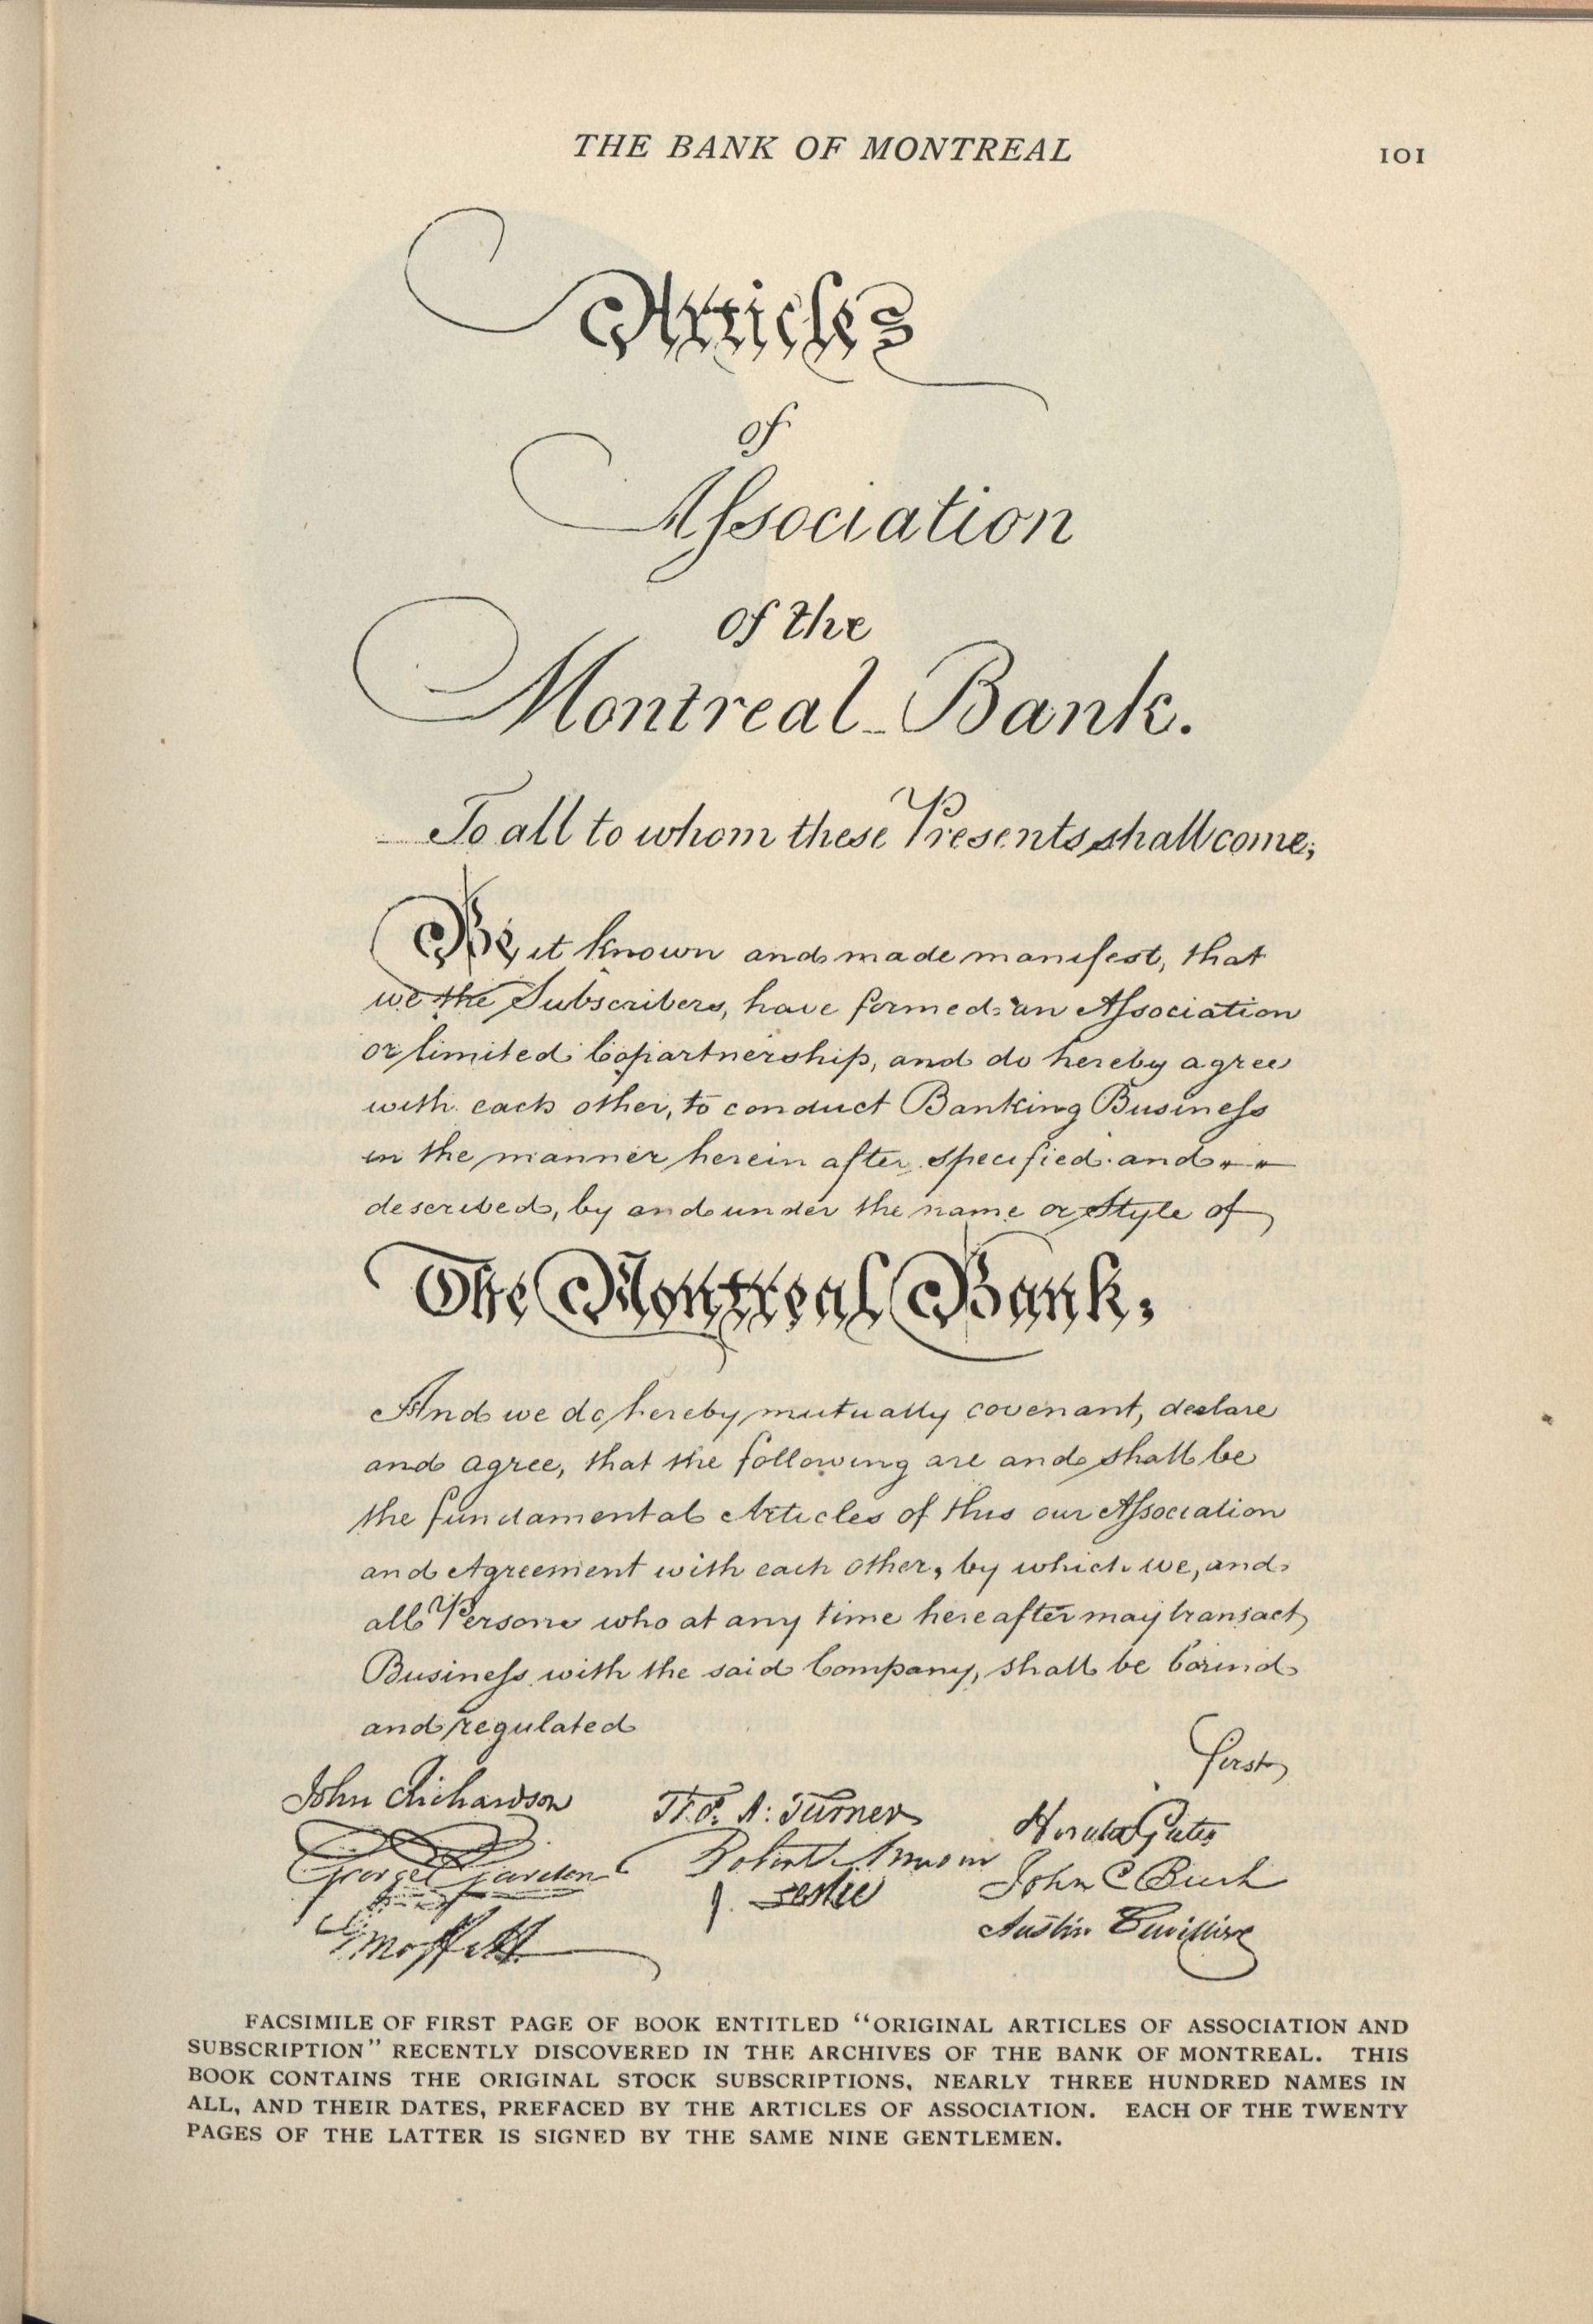 THE BANK OF MONTREAL 101
Articles
of
Association
of the
Montreal Bank.
To all to whom these Presents shall come;
Be it known and made manifest, that
we the Subscribers, have formed an Association
or limited Copartnership, and do hereby agree
with each other, to conduct Banking Business
in the manner herein after specified and
described, by and under the name or Style of
The Montreal Bank,
And we do hereby mutually covenant, declare
and agree, that the following are and shall be
the fundamental Articles of this our Association
and Agreement with each other, by which we, and
all Persons who at any time hereafter may transact
Business with the said Company, shall be bound
and regulated
First
John Richardson
George Garden
Moffatt
A: Turner
Robert
J. Leslie
Horatio Gates
John C Bush
Austin Cuvillier
FACSIMILE OF FIRST PAGE OF BOOK ENTITLED "ORIGINAL ARTICLES OF ASSOCIATION AND
SUBSCRIPTION" RECENTLY DISCOVERED IN THE ARCHIVES OF THE BANK OF MONTREAL. THIS
BOOK CONTAINS THE ORIGINAL STOCK SUBSCRIPTIONS, NEARLY THREE HUNDRED NAMES IN
ALL, AND THEIR DATES, PREFACED BY THE ARTICLES OF ASSOCIATION. EACH OF THE TWENTY
PAGES OF THE LATTER IS SIGNED BY THE SAME NINE GENTLEMEN.